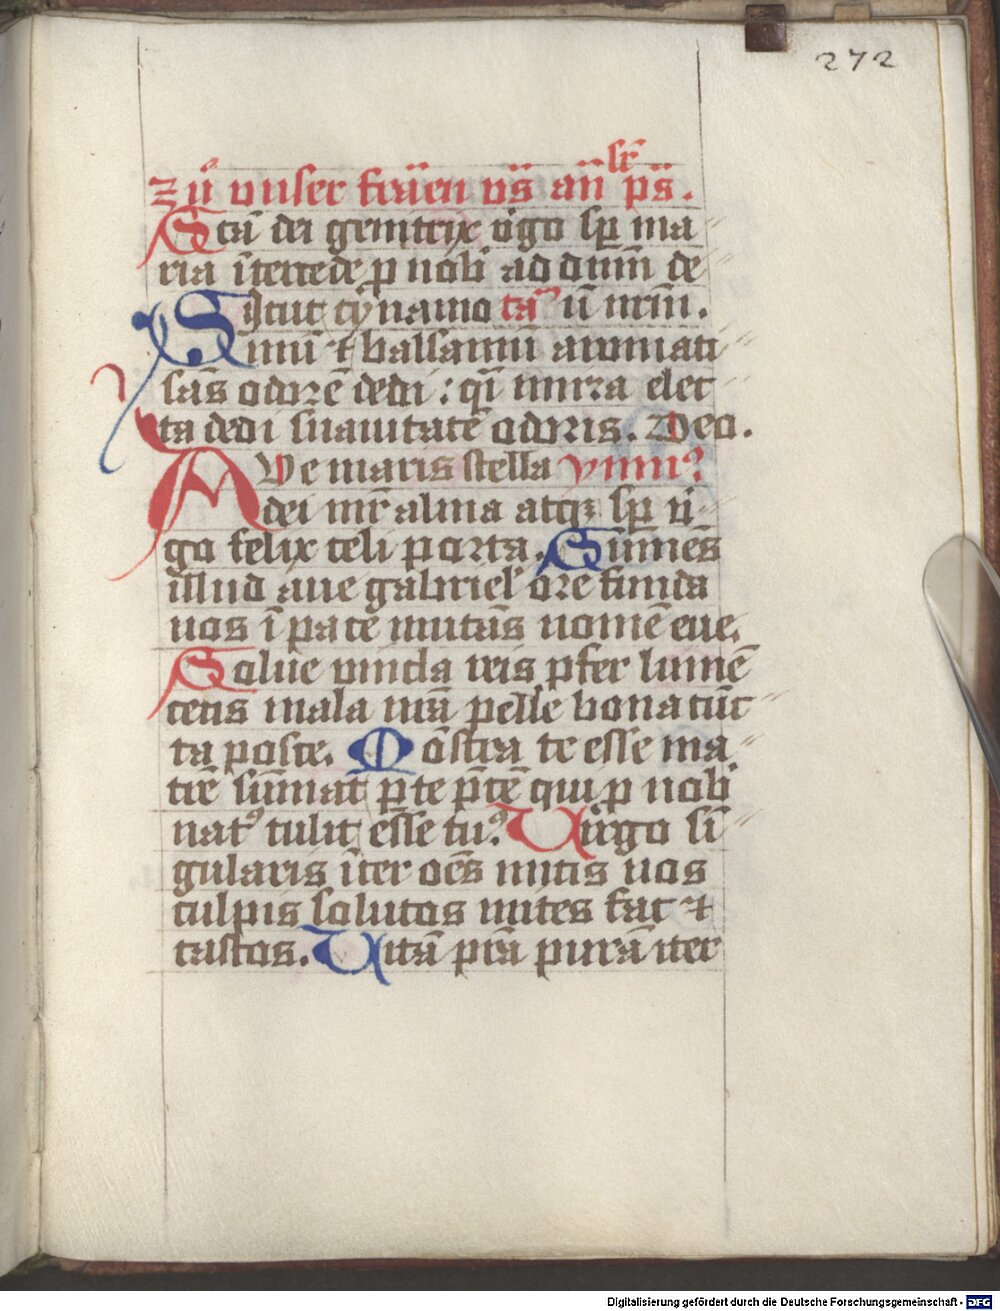 272
zů vnser frawen vs̄ an̄ sr̄ ps̄.
Sctā dei genitrix v̊go sp̄ ma
ria īterrede p nob̄ ad dnm̄ de
Sicut cynamo cā ū nrm̄.
mū ⁊ balsamū aromati
sās odorē dedi : qi mirra elec
ta dedi suauitatē odoris. Deo.
AVe maris stella ymn⁹
dei mr̄ alma atqȝ sp̄ v̊
go felix celi porta. Sūmēs
illud aue gabriel̛ ore funda
nos ī pace mutās nomē eue.
Solue vincla reis pfer lumē
cecis mala nrā pelle bona cūc
ta posce. Mōstra te esse ma
trē sūmat p te p̄cē qui p nob̄
nat⁹ tulit esse tu⁹. Uirgo sī
gularis īter oēs mitis nos
culpis solutos mites fac ⁊
castos. Uitā prā purā iter
Digitalisierung gefördert durch die Deutsche Forschungsgemeinschaft - DFG